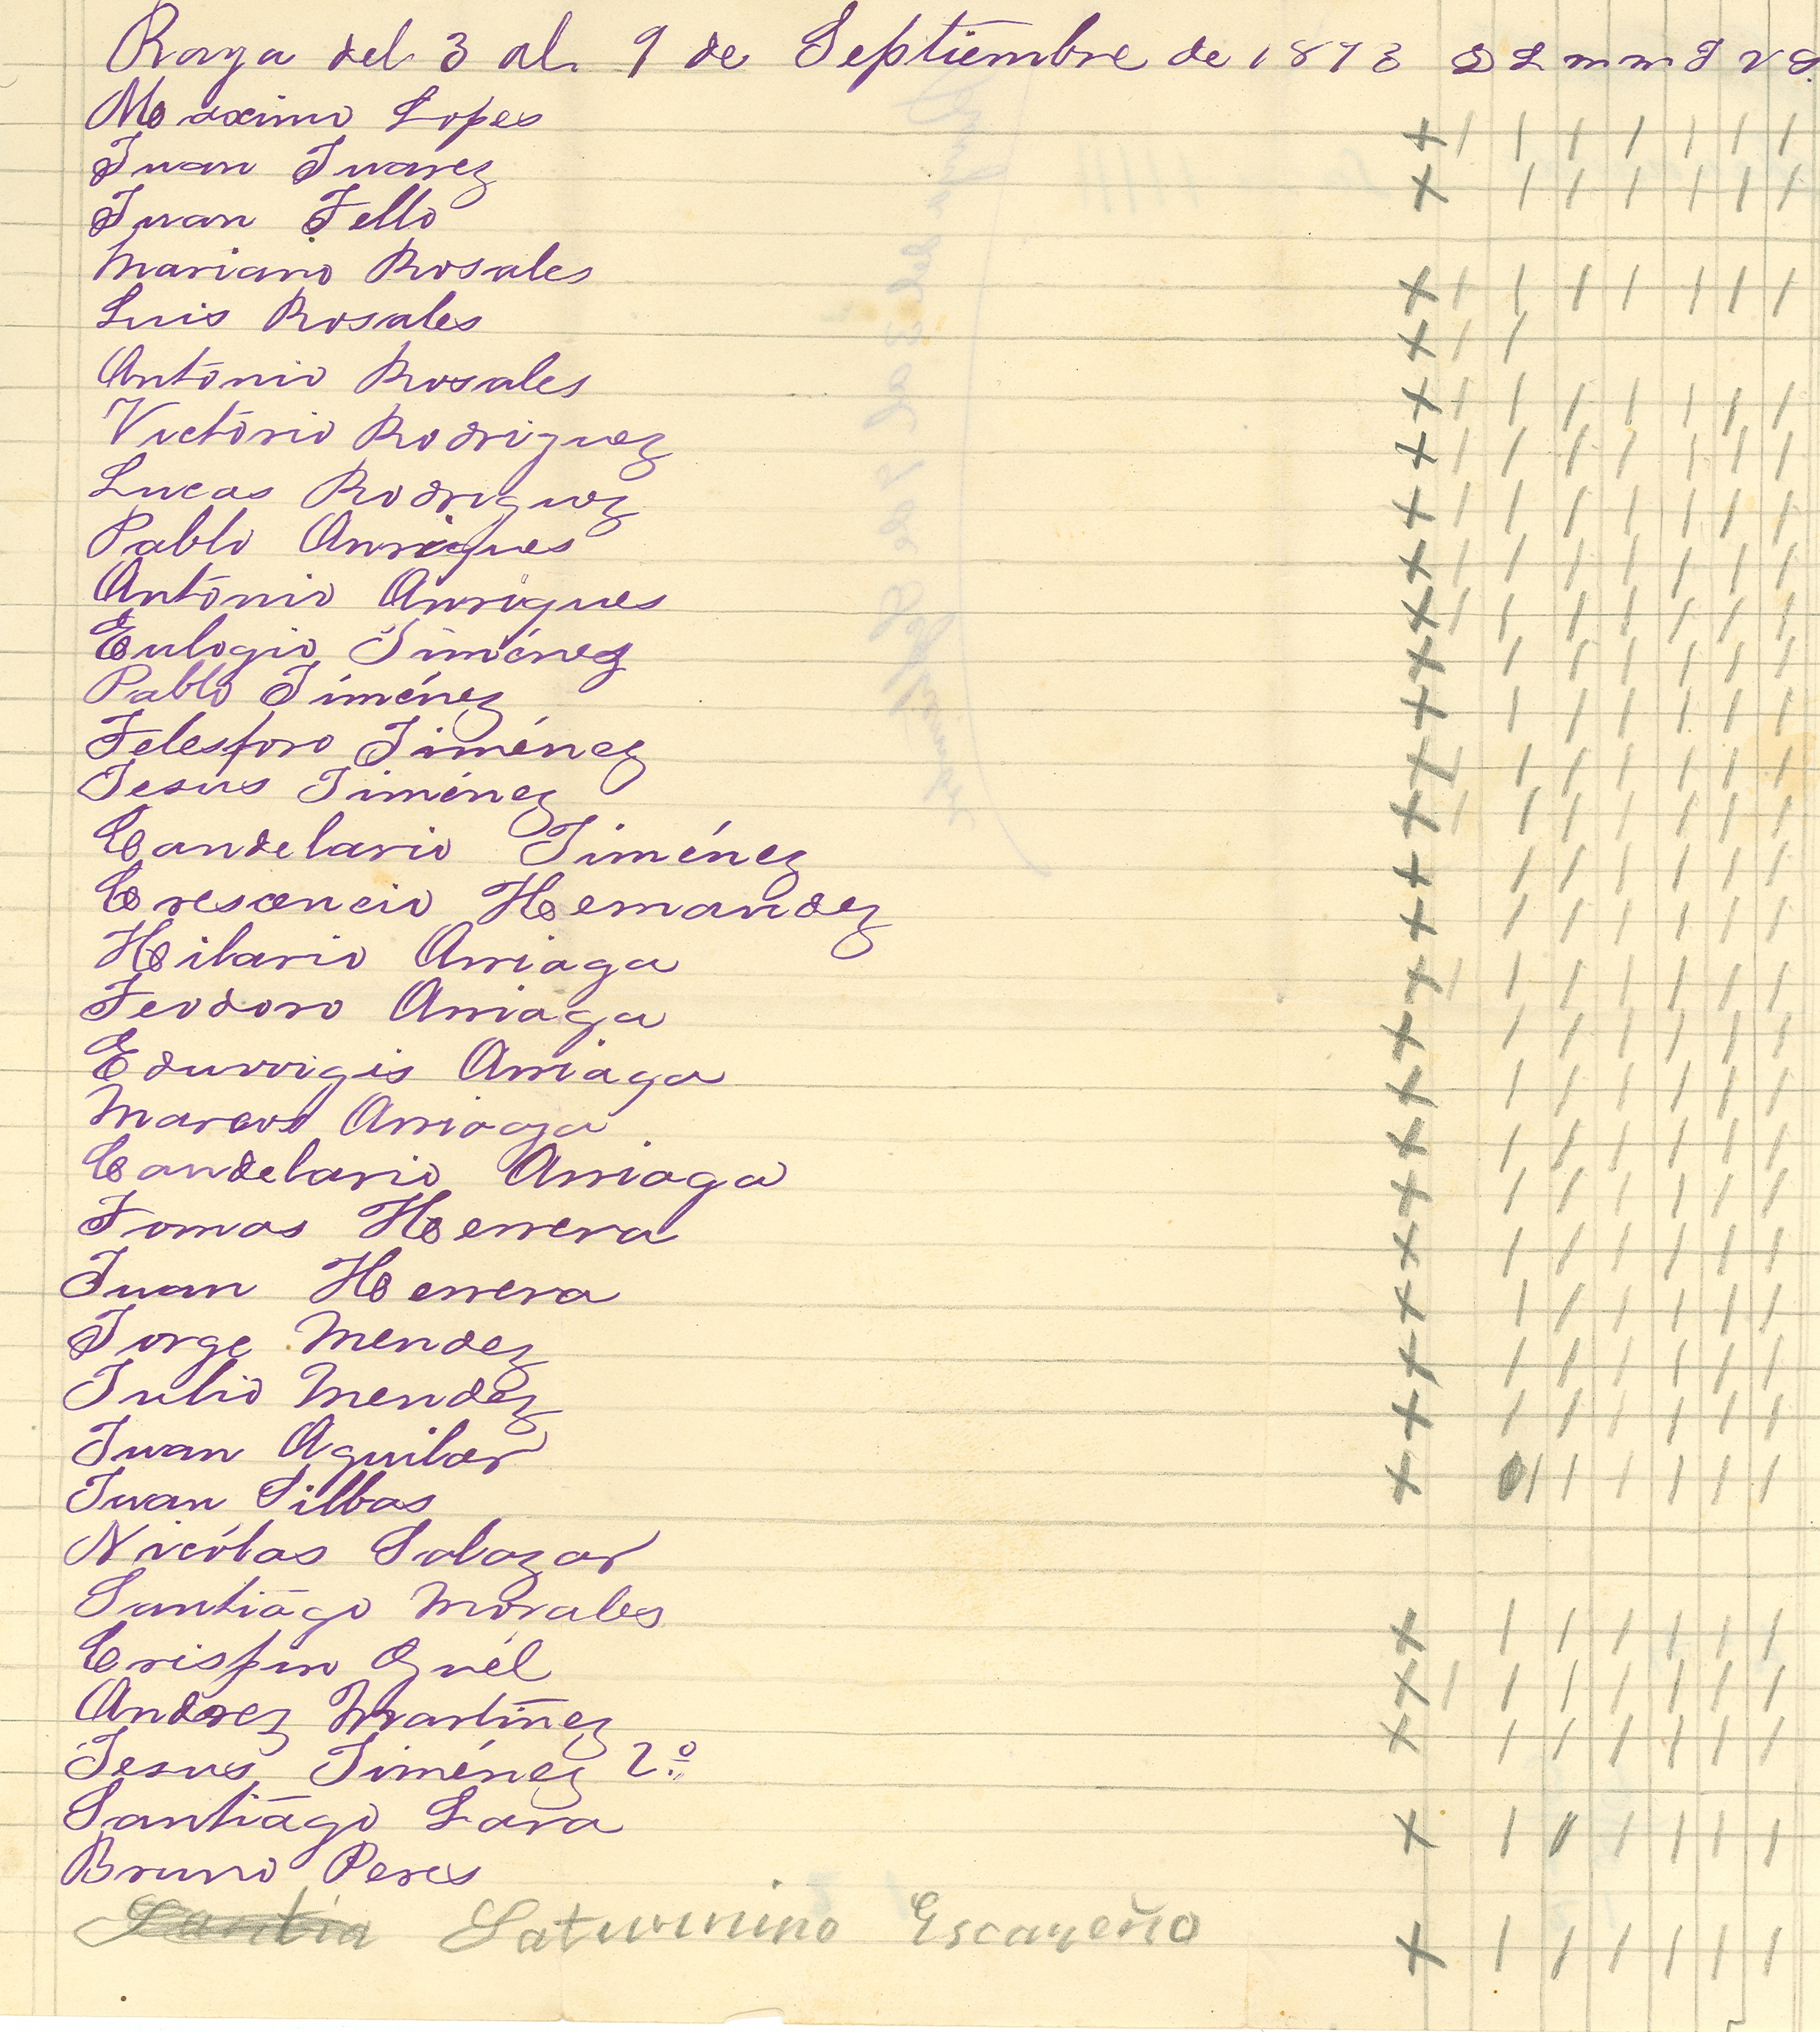 Raya del 3 al 9 de Septiembre de 1893 D L m m J V S.
Maxximo Lopes
Juan Juarez
Juan Tello
Mariano Rosales
Luis Rosales
Antonio Rosales
Victorio Rodriguez
Lucas Rodriguez
Pablo Anriques
Antonio Anriques
Eulogio Jiménez
Pablo Jiménez
Telesforo Jiménez
Jesus Jiménez
Candelario Jiménez
Cresencio Hernandez
Hilario Arriaga
Teodoro Arriaga
Eduvvigis Arriaga
Marcos Arriaga
Candelario Arriaga
Tomas Herrera
Juan Herrera
Jorge Mendez
Julio Mendez
Juan Aguilar
Juan Silbas
Nicolas Salazar
Santiago Morales
Crispin
Andrez Martinez
Jesus Jiménez 2º
Santiago Lara
Bruno Peres
Saturnino Escareño